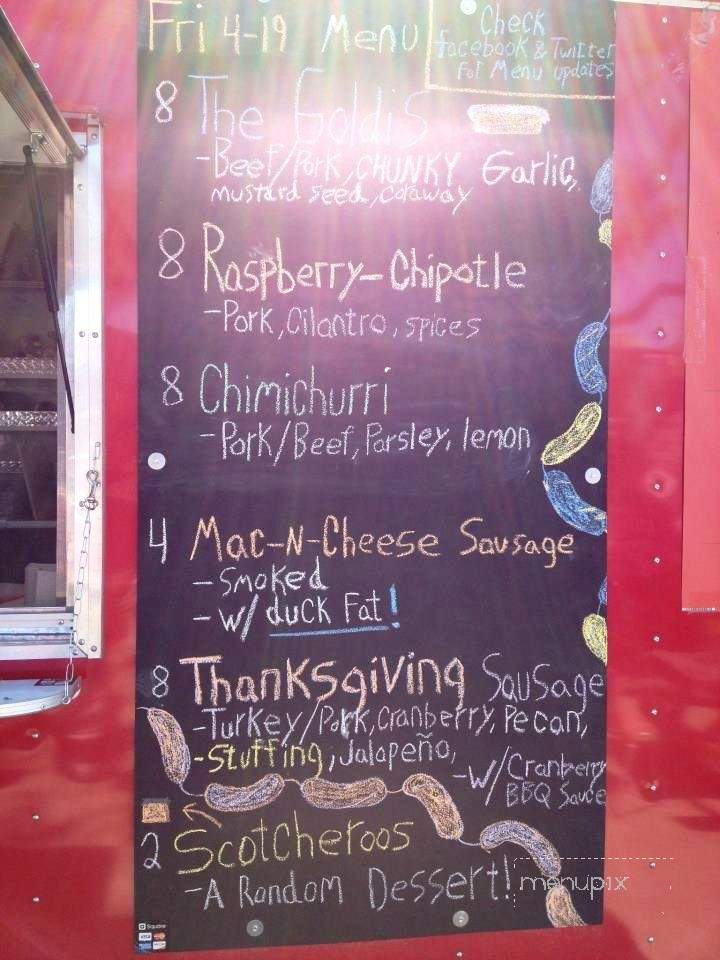 Fri 4-19 Menu
Check
facebook & Twitter
For Menu updates
8 The Goldis
-Beef/Pork, CHUNKY Garlic,
mustard seed, caraway
8 Raspberry-Chipotle
-Pork, Cilantro, spices
8 Chimichurri
-Pork/Beef, Parsley, lemon
4 Mac-N-Cheese Sausage
-Smoked
-w/ duck Fat!
8 Thanksgiving Sausage
-Turkey/Pork, cranberry, Pecan,
-Stuffing, Jalapeño,
-w/ Cranberry
BBQ Sauce
2 Scotcheroos
-A Random Dessert!
menupix
Square
VISA